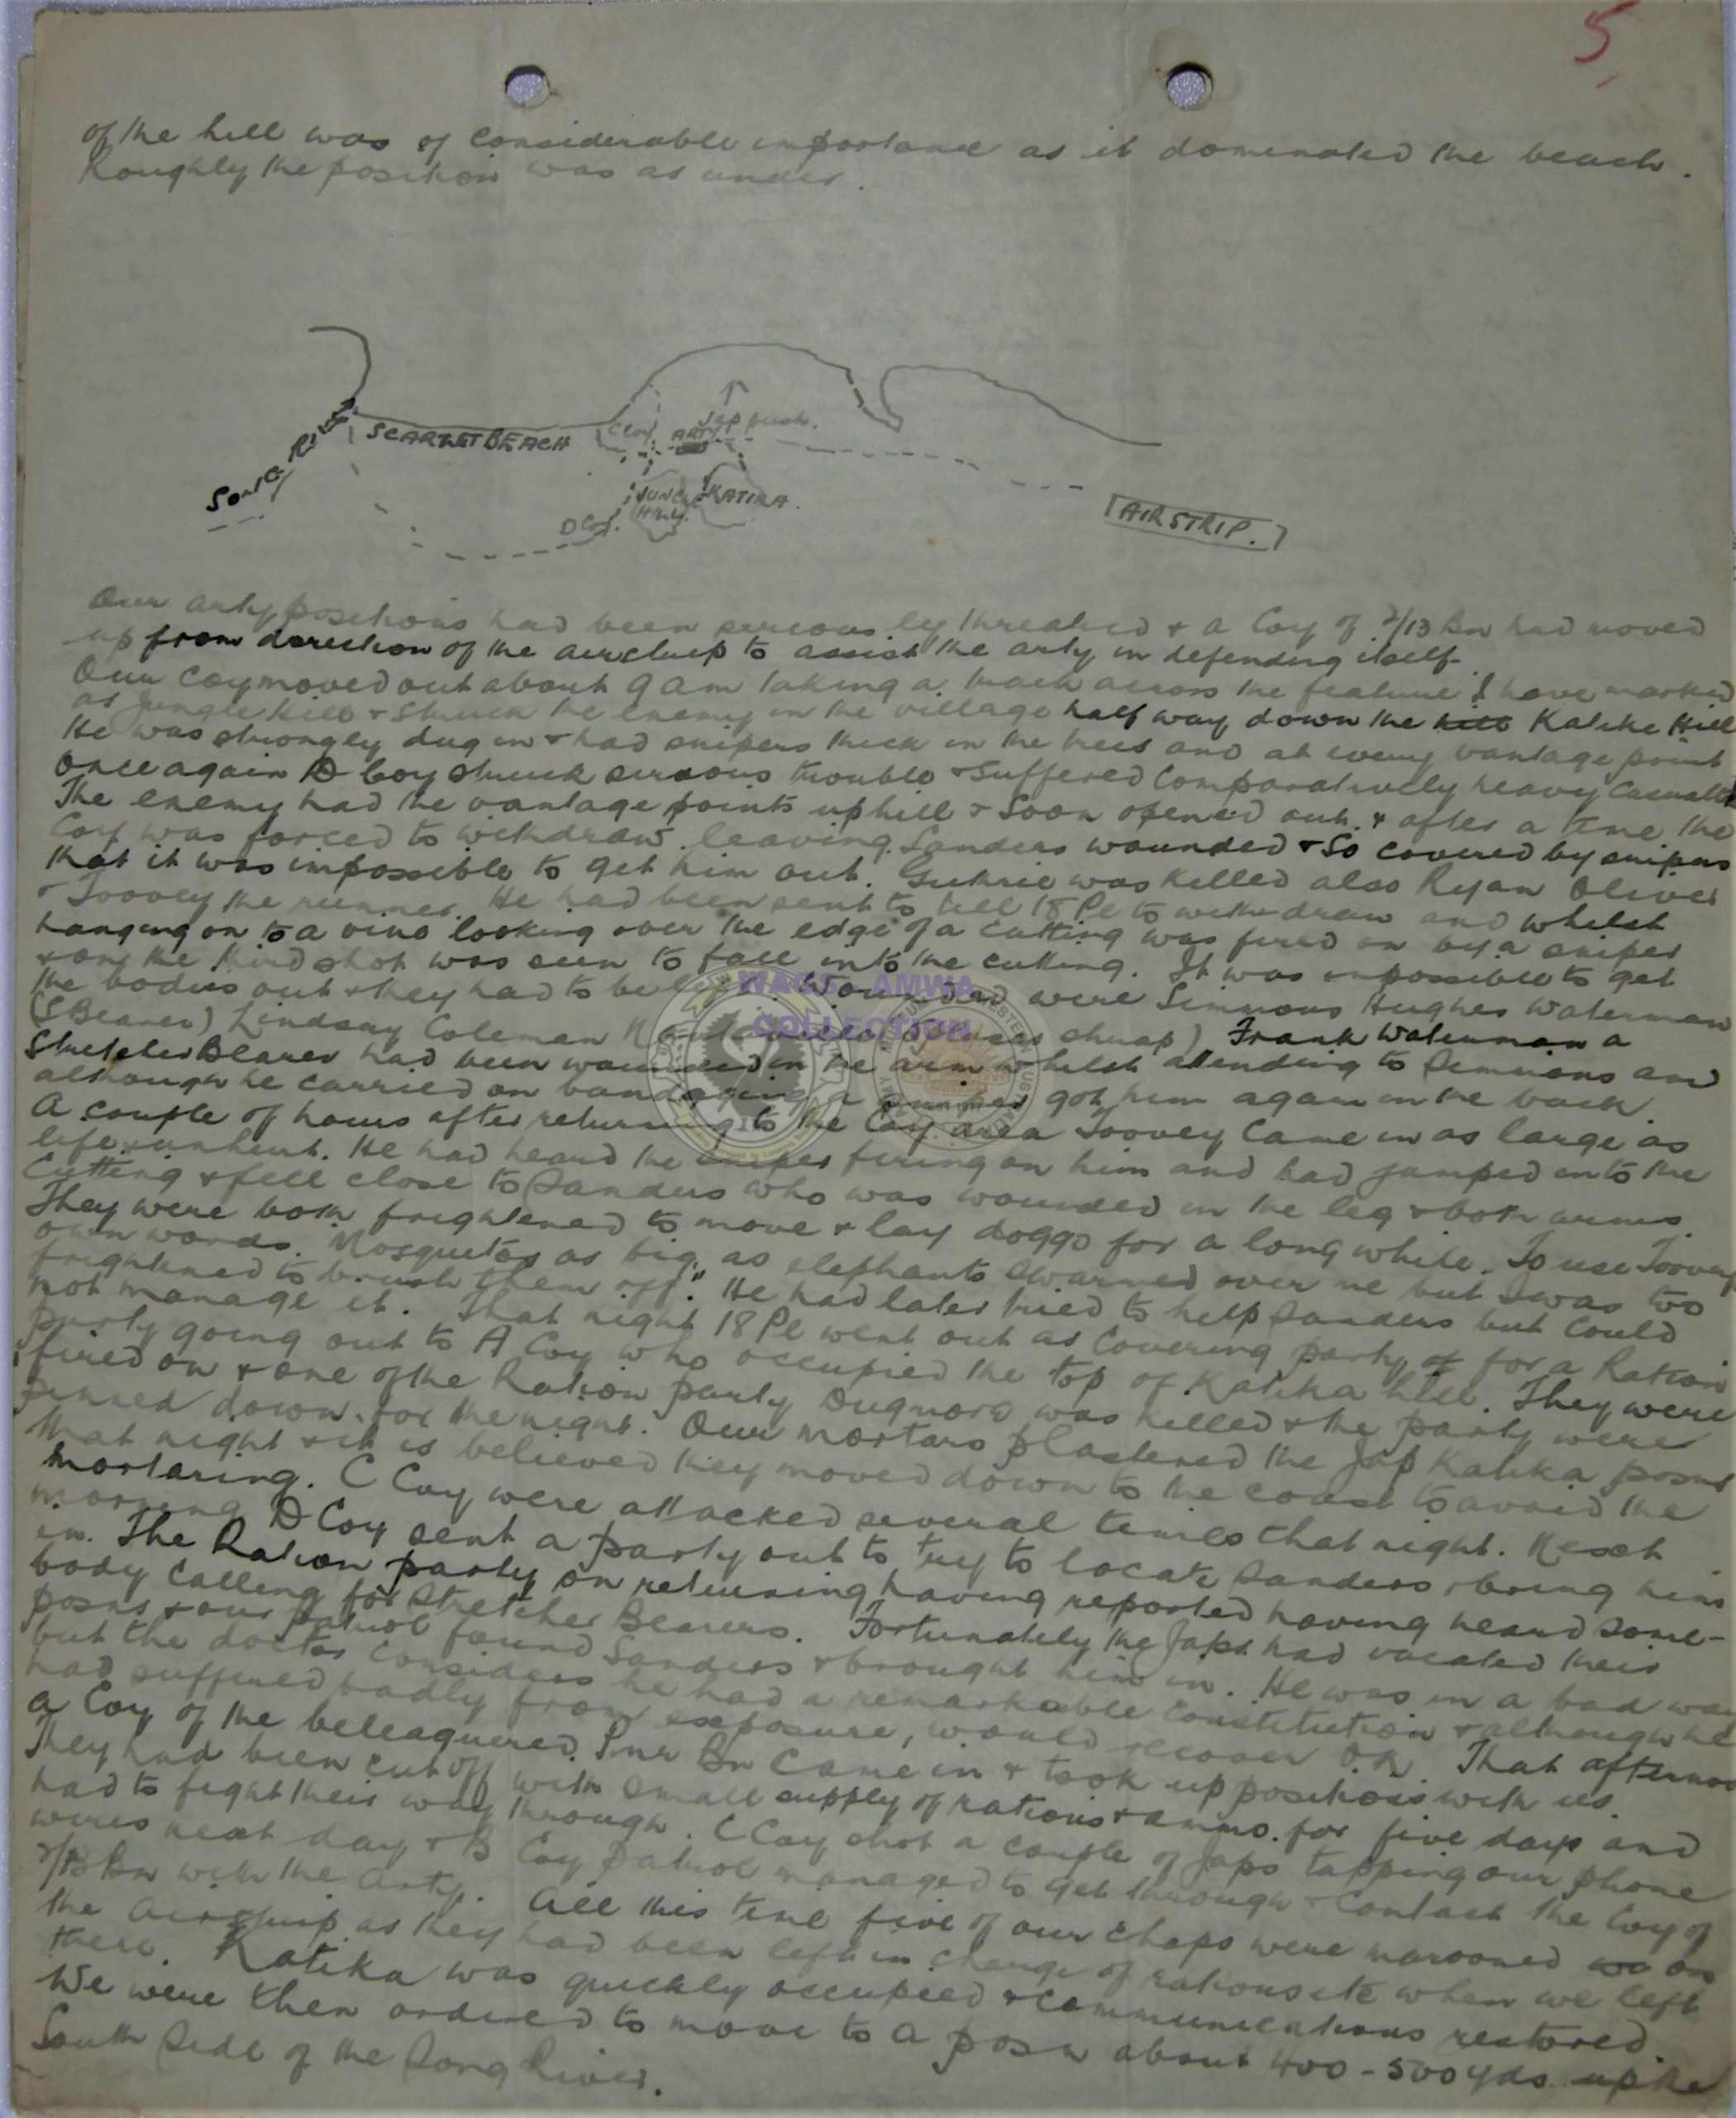 5
of the hill was of considerable importance as it dominated the beach.
Roughly the position was as under.
SONG RIVER
SCARLET BEACH
C Coy
ARTY
Jap push.
JUNGLE HILL
KATIKA.
D Coy.
AIRSTRIP.
Our arty positions had been seriously threatened + a Coy of 2/13 Bn had moved
up from direction of the airstrip to assist the arty in defending itself.
Our coy moved out about 9 am taking a track across the feature I have marked
as Jungle Hill + struck the enemy in the village half way down the Katika Hill
He was strongly dug in + had snipers thick in the trees and at every vantage point
Once again D Coy struck serious trouble + suffered comparatively heavy casualties
The enemy had the vantage points uphill + soon opened out. + after a time the
Coy was forced to withdraw leaving Sanders wounded + so covered by snipers
that it was impossible to get him out. Guthrie was killed also Ryan Oliver
+ Toovey the runner. He had been sent to tell 18 Pl to withdraw and whilst
hanging on to a vine looking over the edge of a cutting was fired on by a sniper
+ on the third shot was seen to fall into the cutting. It was impossible to get
the bodies out + they had to be left. Wounded were Simmons Hughes Waterman
(S Bearer) Lindsay Coleman chap) Frank Waterman a
Stretcher Bearer had been wounded in the arm whilst attending to Simmons and
although he carried on bandaging a sniper got him again in the back.
A couple of hours after returning to the Coy area Toovey came in as large as
life + unhurt. He had heard the sniper firing on him and had jumped into the
cutting + fell close to Sanders who was wounded in the leg + both arms.
They were both frightened to move + lay doggo for a long while. To use Toovey's
own words. Mosquitos as big as elephants swarmed over me but I was too
frightened to brush them off." He had later tried to help Sanders but could
not manage it. That night 18 Pl went out as covering party for a Ration
party going out to A Coy who occupied the top of Katika hill. They were
fired on + one of the Ration party Dugmore was killed + the party were
pinned down for the night. Our mortars plastered the Jap Katika posns
that night + it is believed they moved down to the coast to avoid the
mortaring. C Coy were attacked several times that night. Next
morning D Coy sent a party out to try to locate Sanders + bring him
in. The Ration party on returning having reported having heard some-
body calling for Stretcher Bearers. Fortunately the Japs had vacated their
posns + our patrol found Sanders + brought him in. He was in a bad way
but the doctor considers he had a remarkable constitution + although he
had suffered badly from exposure, would recover O.K. That afternoon
a Coy of the beleaguered Pnr Bn came in + took up positions with us.
They had been cut off with small supply of rations + ammo. for five days and
had to fight their way through. C Coy shot a couple of Japs tapping our phone
wires next day + B Coy patrol managed to get through + contact the Coy of
2/13 Bn with the arty. All this time five of our chaps were marooned on
the airstrip as they had been left in charge of rations etc when we left
there. Katika was quickly occupied + communications restored.
We were then ordered to move to a posn about 400 - 500 yds up the
South Side of the Song River.
WAGS - AMWA
COLLECTION